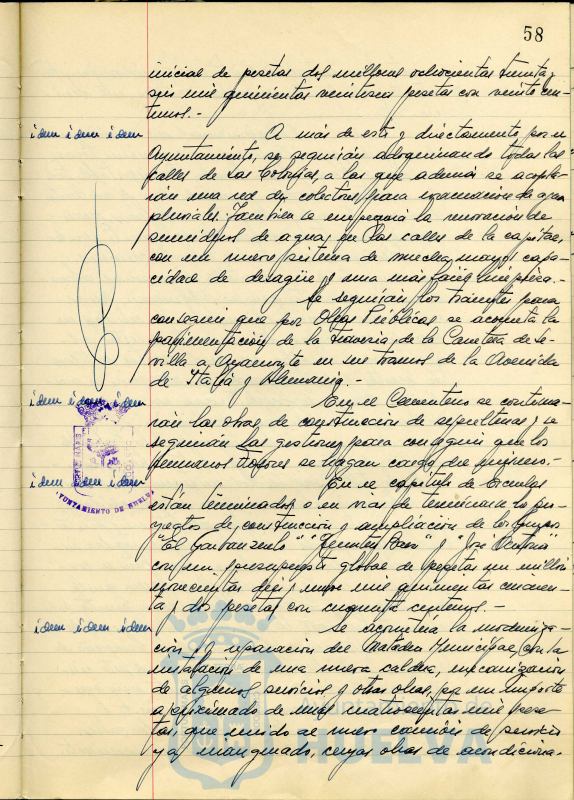 58
inicial de pesetas dos millones ochocientas treinta y
seis mil quinientas veintiseis pesetas con veinte cen-
timos.-
idem idem idem
A más de esto y directamente por el
Ayuntamiento, se seguirán adoquinando todas las
calles de Las Colonias, a las que además se acopla-
rán una red de colectores para evacuación de aguas
pluviales. También se empezará la renovación de
sumideros de aguas en las calles de la capital,
con un nuevo sistema de mucha mayor capa-
cidad de desagüe y una más fácil limpieza.-
Se seguirán los trámites para
conseguir que por Obras Públicas se acometa la
pavimentación de la travesía de la Carretera de Se-
villa a Ayamonte en sus tramos de la Avenida
de Italia y Alemania.-
idem idem idem
En el Cementerio se continua-
rán las obras de construcción de sepulturas y se
seguirán las gestiones para conseguir que los
hermanos Fosores se hagan cargo del mismo.
idem idem idem
En el capítulo de Escuelas
están terminados o en vías de terminarse los pro-
yectos de construcción y ampliación de los Grupos
"El Garbanzuelo" " " y "José Antonio"
con un presupuesto global de pesetas un millón
novecientas diez y nueve mil quinientas cincuen-
ta y dos pesetas con cincuenta centimos.-
idem idem idem
Se acometerá la moderniza-
ción y reparación del Matadero Municipal, con la
instalación de una nueva caldera, mecanización
de algunos servicios y otras obras, por un importe
aproximado de unas cuatrocientas mil pese-
tas que unido al nuevo camión de servicio
ya inaugurado, cuyas obras de acondiciona-
AYUNTAMIENTO DE HUELVA
Ayuntamiento de
HUELVA